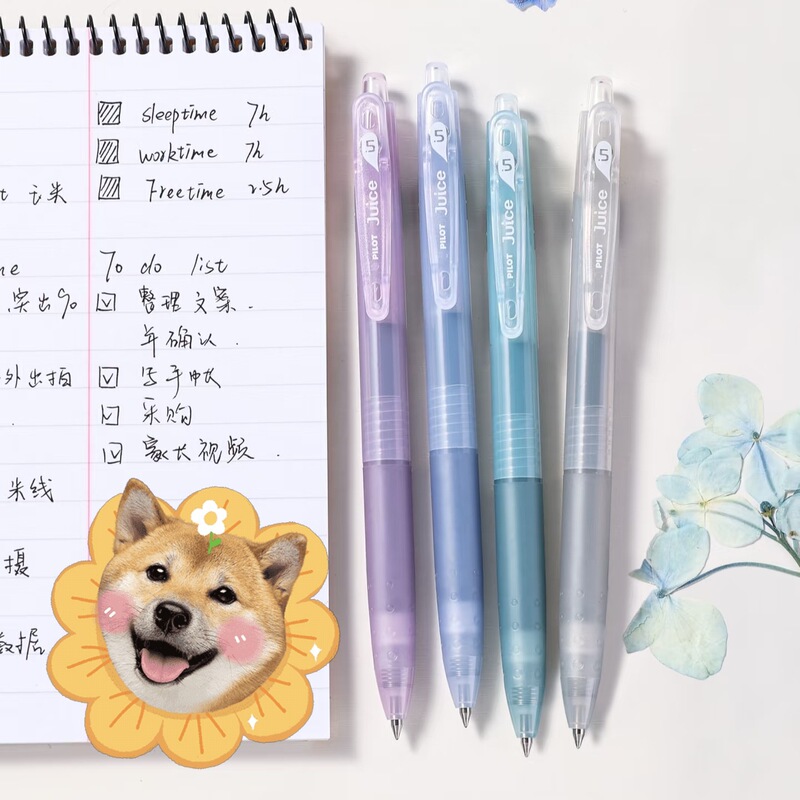 sleeptime 7h
worktime 7h
Freetime 2.5h
To do list
整理文案.
年确认.
写手帐
采购
家长视频.
外出拍
米线
摄
数据
.5
Juice
PILOT
.5
Juice
PILOT
.5
Juice
PILOT
.5
Juice
PILOT